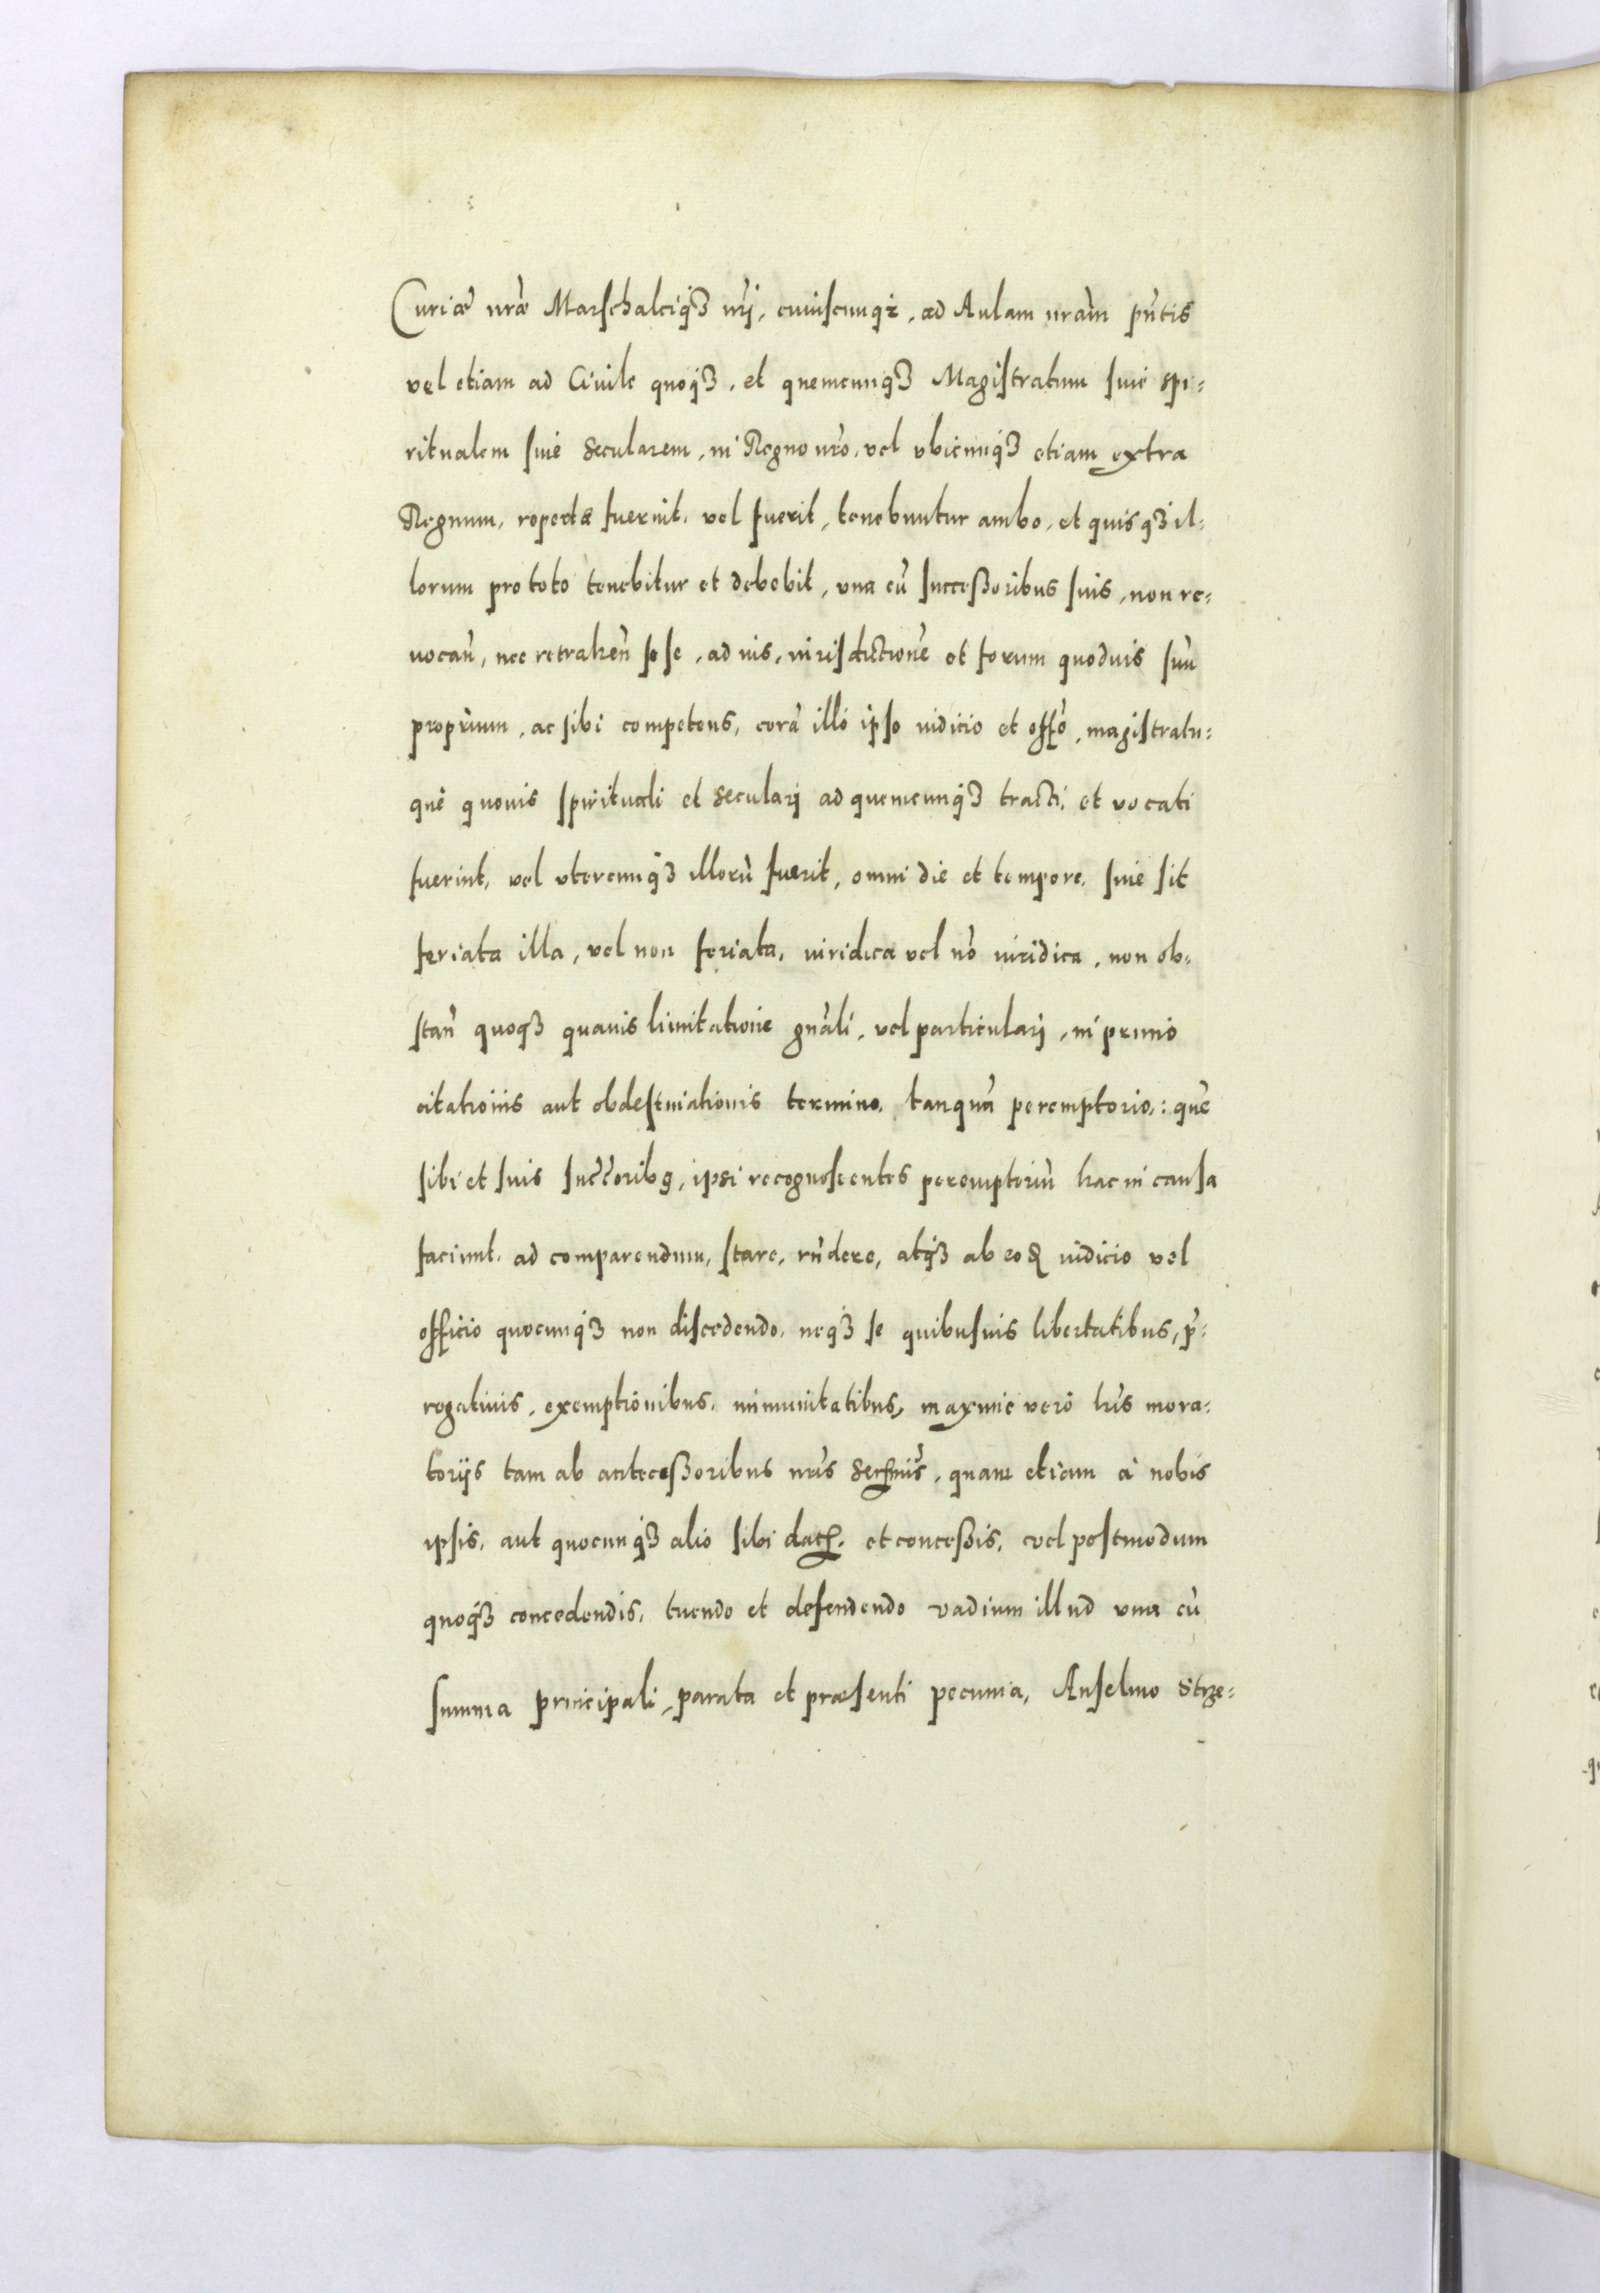 Curiæ nr̃æ Marschalciq́ꝫ nr̃j, cuiuscunqꝫ, ad Aulam nr̃am pñtis
vel etiam ad Ciuile quoq́ꝫ, et quemcunq́ꝫ Magistratum siue spi=
ritualem siue Secularem, in Regno nr̃o, vel vbicunq́ꝫ etiam extra
Regnum, repertæ fuerint, vel fuerit, tenebuntur ambo, et quisqꝫ il=
lorum pro toto tenebitur et debebit, vna cũ Succeßoribus suis, non re=
uocañ, nec retraheñ sese, ad ius, iurisdictionẽ et forum quoduis suũ
proprium, ac sibi competens, corã illo ipso iudicio et off̃o, magistratu=
que quouis spirituali et Secularj ad quemcunq́ꝫ tracti, et vocati
fuerint, vel vtercunq́ꝫ illorũ fuerit, omni die et tempore, siue sit
feriata illa, vel non feriata, iuridica vel nõ iuridica, non ob=
stañ quoqꝫ quauis limitatione gñali, vel particularj, in primo
citationis aut obdestinationis termino, tanquã peremptorio,: quẽ
sibi et suis Succ̃orib9, ipsi recognoscentes peremptoriũ hac in causa
faciunt, ad comparendum, stare, rñdere, atq́ꝫ ab eoꝺ̃ iudicio vel
officio quocunq́ꝫ non discedendo, neq́ꝫ se quibusuis libertatibus, p̃=
rogatiuis, exemptionibus, immunitatibus, maxime verò lr̃is mora=
torijs tam ab anteceßoribus nr̃is Serẽmis, quam etiam à nobis
ipsis, aut quocunq́ꝫ alio sibi datꝭ, et conceßis, vel postmodum
quoq́ꝫ concedendis, tuendo et defendendo vadium illud vna cũ
summa principali, parata et præsenti pecunia, Anselmo Strze=